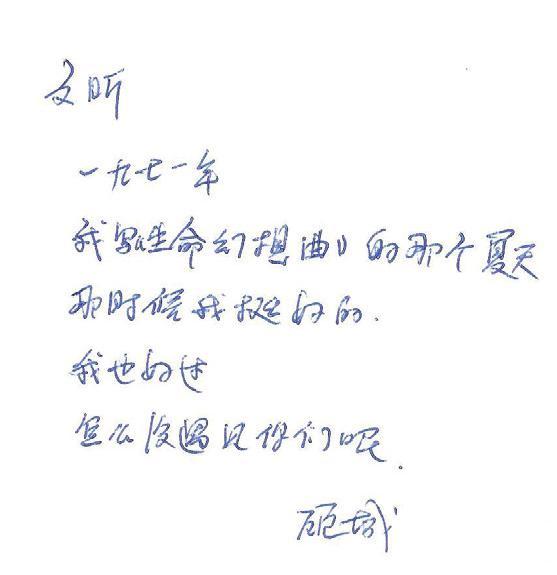 文昕
一九七一年
我写《生命幻想曲》的那个夏天
那时候我挺好的.
我也好过
怎么没遇见你们呢.
顾城